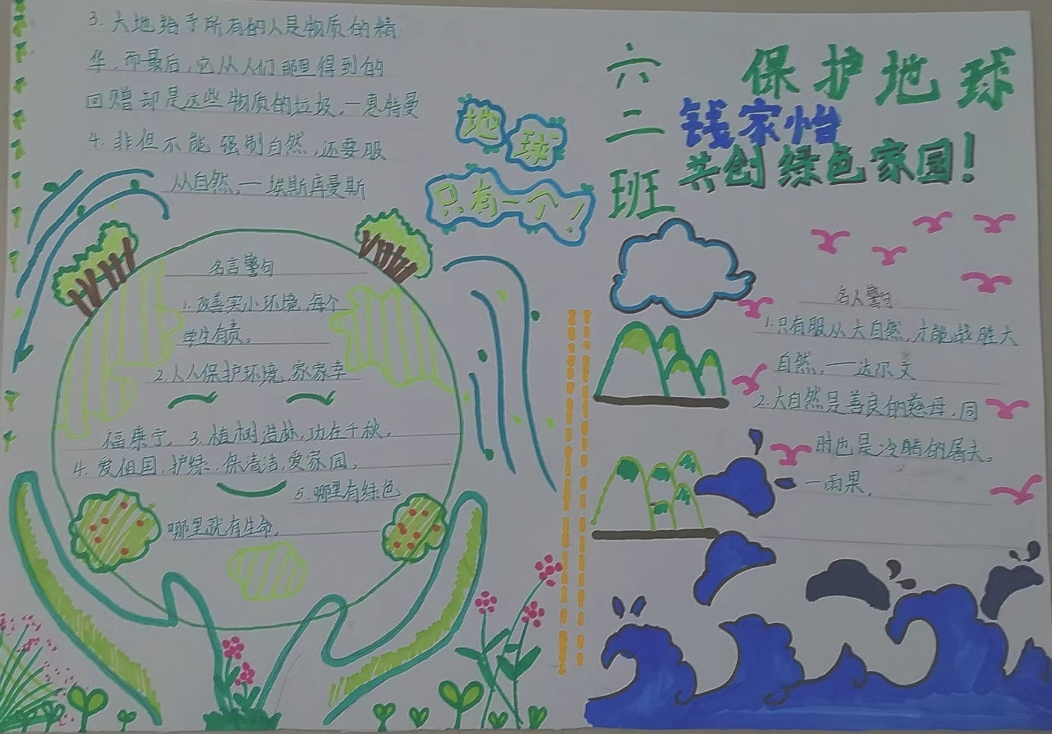 3. 大地给予所有的人是物质的精
华,而最后,它从人们那里得到的
回赠却是这些物质的垃圾。—惠特曼
4. 非但不能强制自然,还要服
从自然。— 埃斯库曼斯
地球
只有一个!
名言警句
1. 改善实小环境,每个
学生有责。
2. 人人保护环境,家家幸
福康宁。3. 植树造林,功在千秋。
4. 爱祖国,护绿,保清洁,爱家园。
5. 哪里有绿色
哪里就有生命。
六二班
保护地球
钱家怡
共创绿色家园!
名人警句.
1. 只有服从大自然,才能战胜大
自然。——达尔文
2. 大自然是善良的慈母,同
时也是冷酷的屠夫。
—雨果。